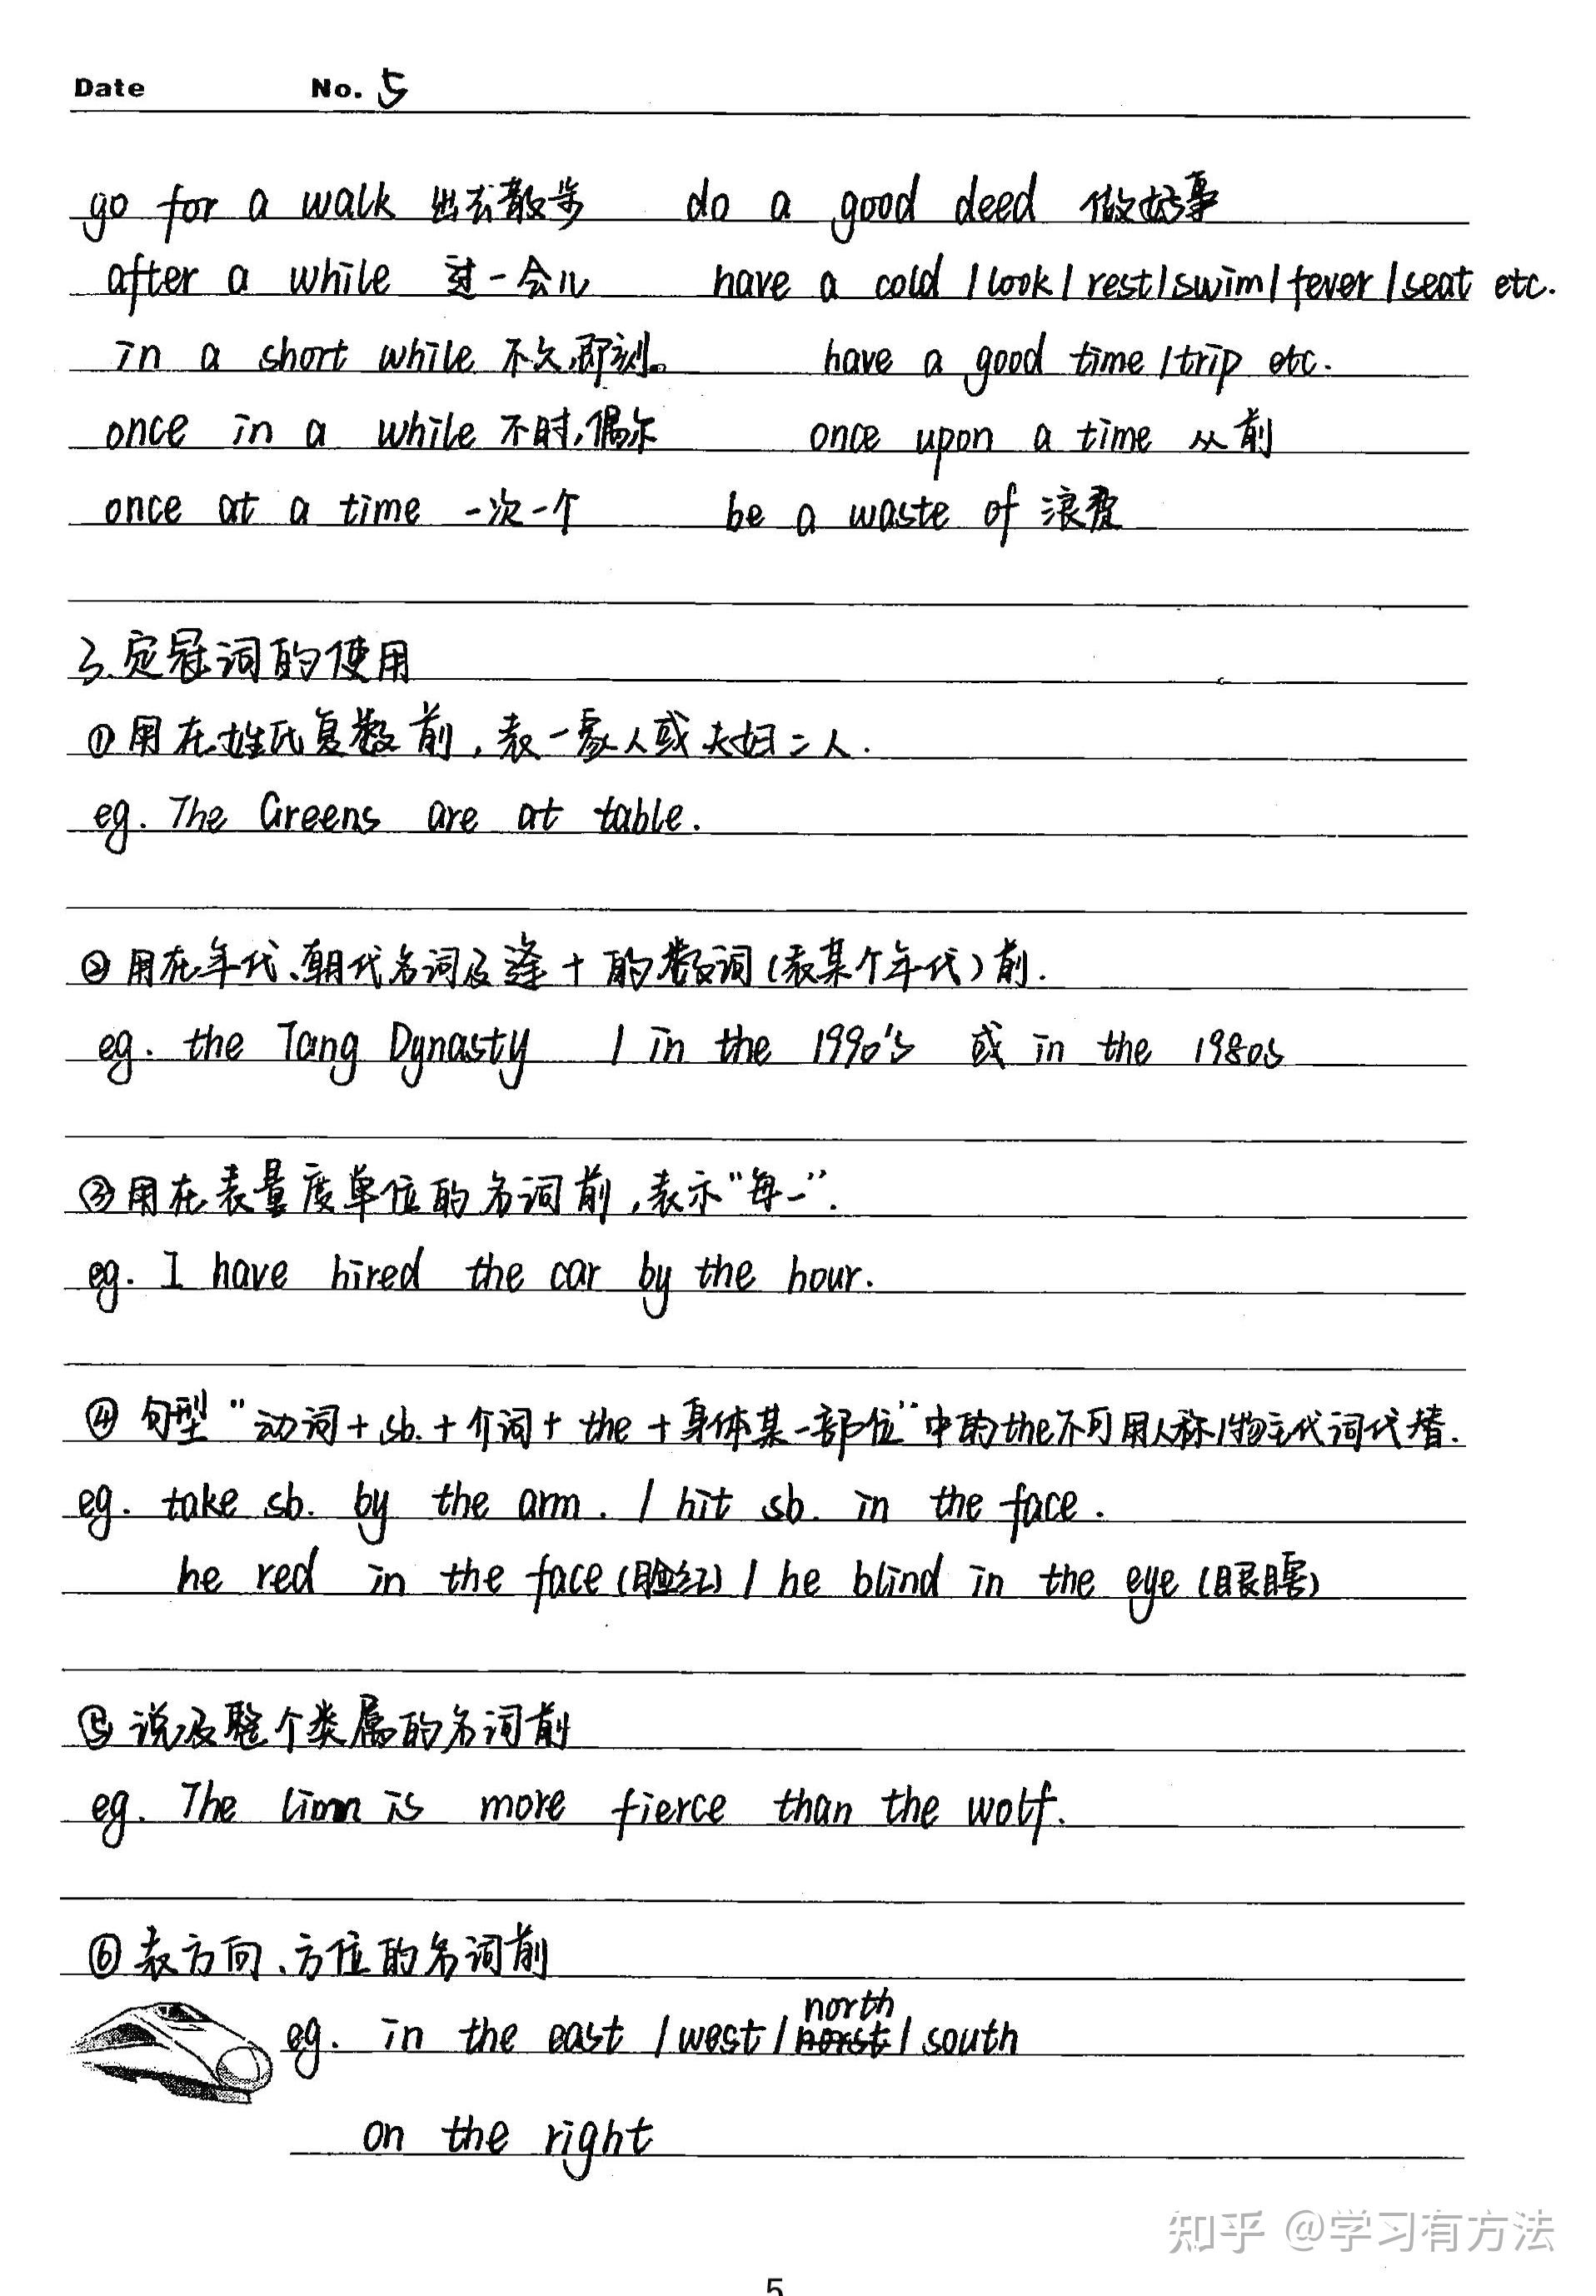 Date No. 5
go for a walk 出去散步 do a good deed 做好事
after a while 过一会儿 have a cold / look / rest / swim / fever / seat etc.
in a short while 不久,即刻。 have a good time / trip etc.
once in a while 不时,偶尔 once upon a time 从前
once at a time 一次一个 be a waste of 浪费
3.定冠词的使用
①用在姓氏复数前,表一家人或夫妇二人.
eg. The Greens are at table.
②用在年代、朝代名词及逢十的数词(表某个年代)前.
eg. the Tang Dynasty / in the 1990's 或 in the 1980s
③用在表量度单位的名词前,表示“每一”.
eg. I have hired the car by the hour.
④句型“动词+sb.+介词+the+身体某一部位”中的the不可用人称/物主代词代替.
eg. take sb. by the arm. / hit sb. in the face.
he red in the face(脸红) / he blind in the eye(眼瞎)
⑤说及整个类属的名词前
eg. The lion is more fierce than the wolf.
⑥表方向、方位的名词前
eg. in the east / west / north / south
on the right
知乎 @学习有方法
5